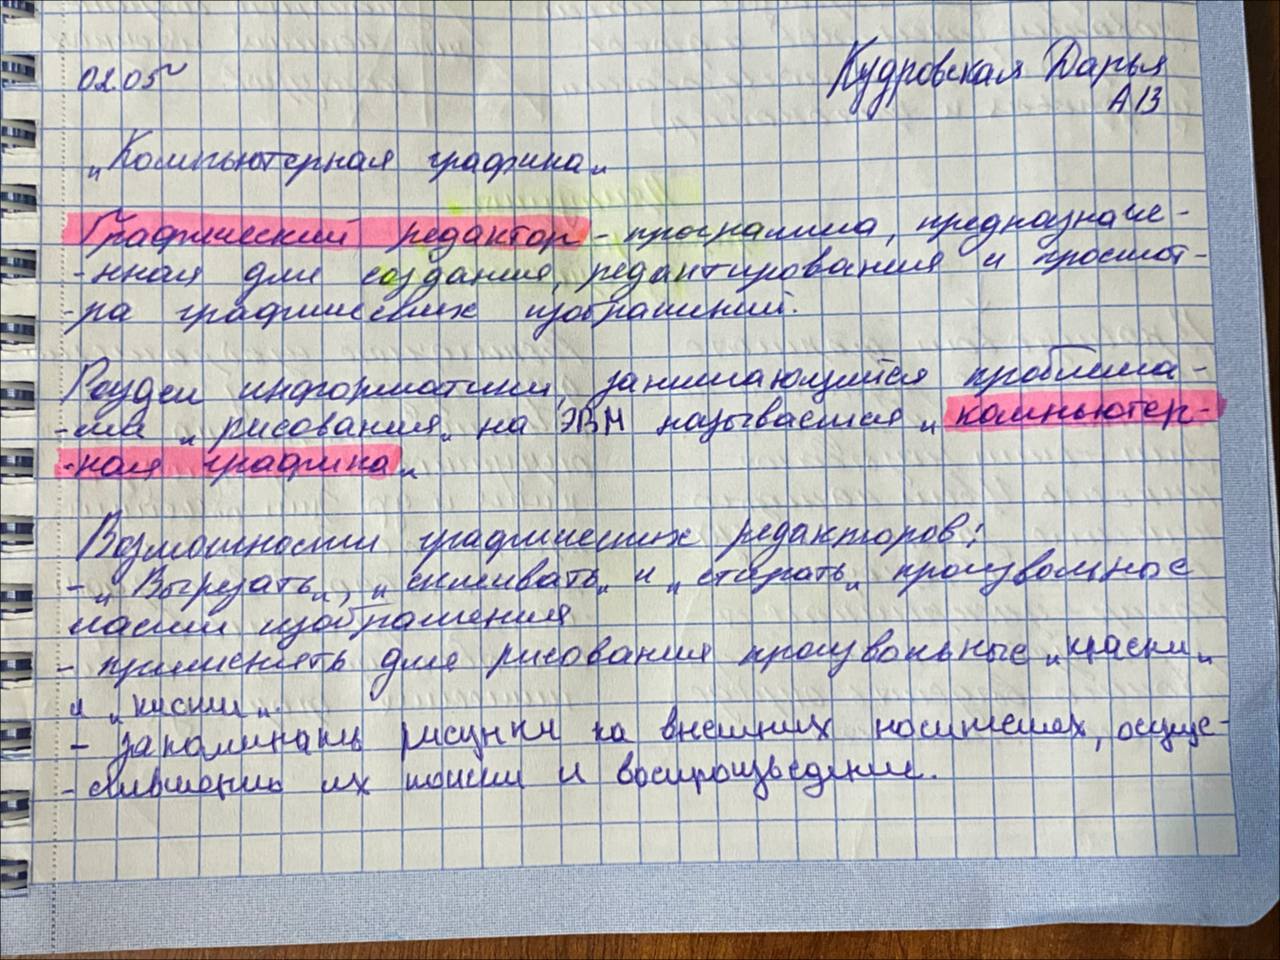 02.05
Кудровская Дарья
А13
„Компьютерная графика„
Графический редактор - программа, предназначе-
-нная для создания, редактирования и просмот-
-ра графических изображений.
Раздел информатики, занимающийся проблема-
-ми „рисования„ на ЭВМ называется „компьютер-
-ная графика„
Возможности графических редакторов:
- „Вырезать„, „склеивать„ и „стирать„ произвольные
части изображения
- применять для рисования произвольные „краски„
и „кисти„.
- запоминать рисунки на внешних носителях, осуще-
-ствлять их поиск и воспроизведение.